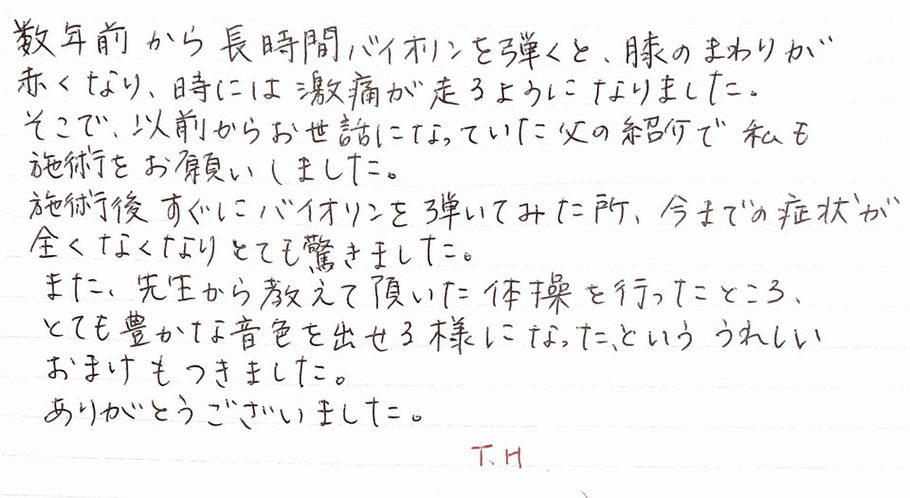 数年前から長時間バイオリンを弾くと、膝のまわりが
赤くなり、時には激痛が走るようになりました。
そこで、以前からお世話になっていた父の紹介で私も
施術をお願いしました。
施術後すぐにバイオリンを弾いてみた所、今までの症状が
全くなくなりとても驚きました。
また、先生から教えて頂いた体操を行ったところ、
とても豊かな音色を出せる様になった、という うれしい
おまけもつきました。
ありがとうございました。
T.H